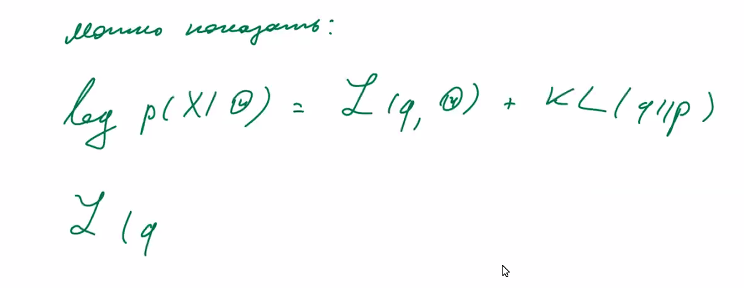 можно показать:
log p(X|Θ) = L(q, Θ) + KL(q||p)
L(q